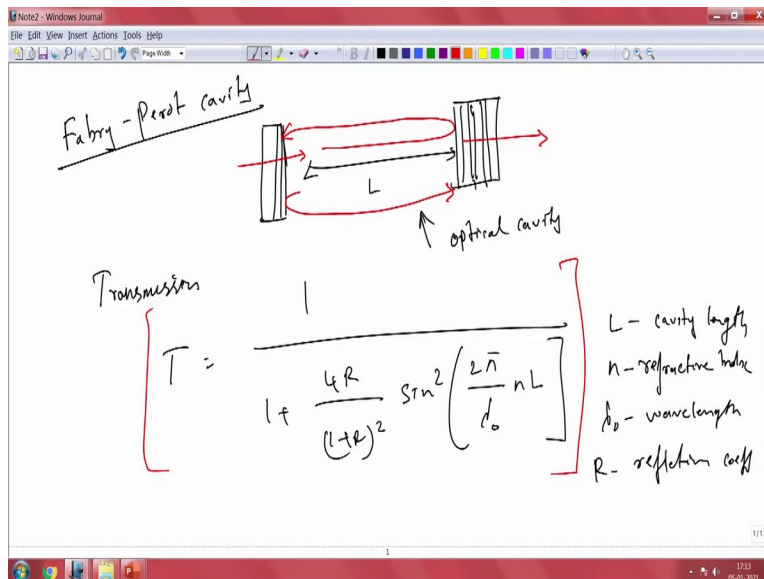 Note2 - Windows Journal
File Edit View Insert Actions Tools Help
Page Width
B I
Fabry-Perot cavity
L
optical cavity
Transmission
T = 1 / 1+ 4R/(1+R)² Sin² (2π/λ₀ nL]
L - cavity length
n - refractive index
λ₀ - wavelength
R - refletion coeff
1/1
1
17:13
05-01-2021